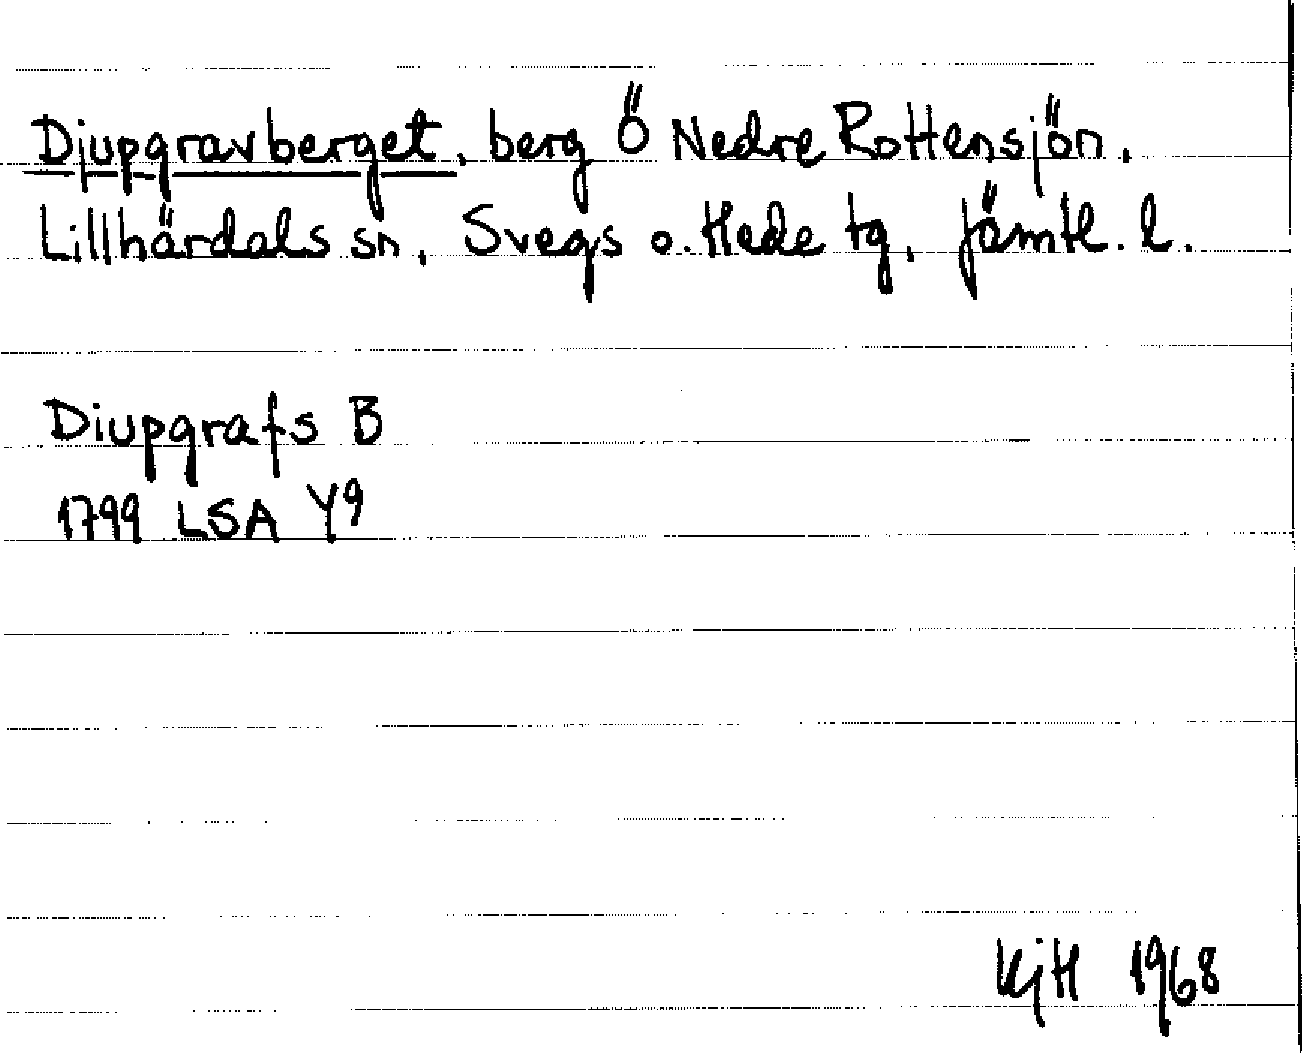 Djupgravberget, berg Ö Nedre Rottensjön,
Lillhärdals sn, Svegs o. Hede tg, Jämtl. l.
Diupgrafs B
1799 LSA Y9
KjH 1968